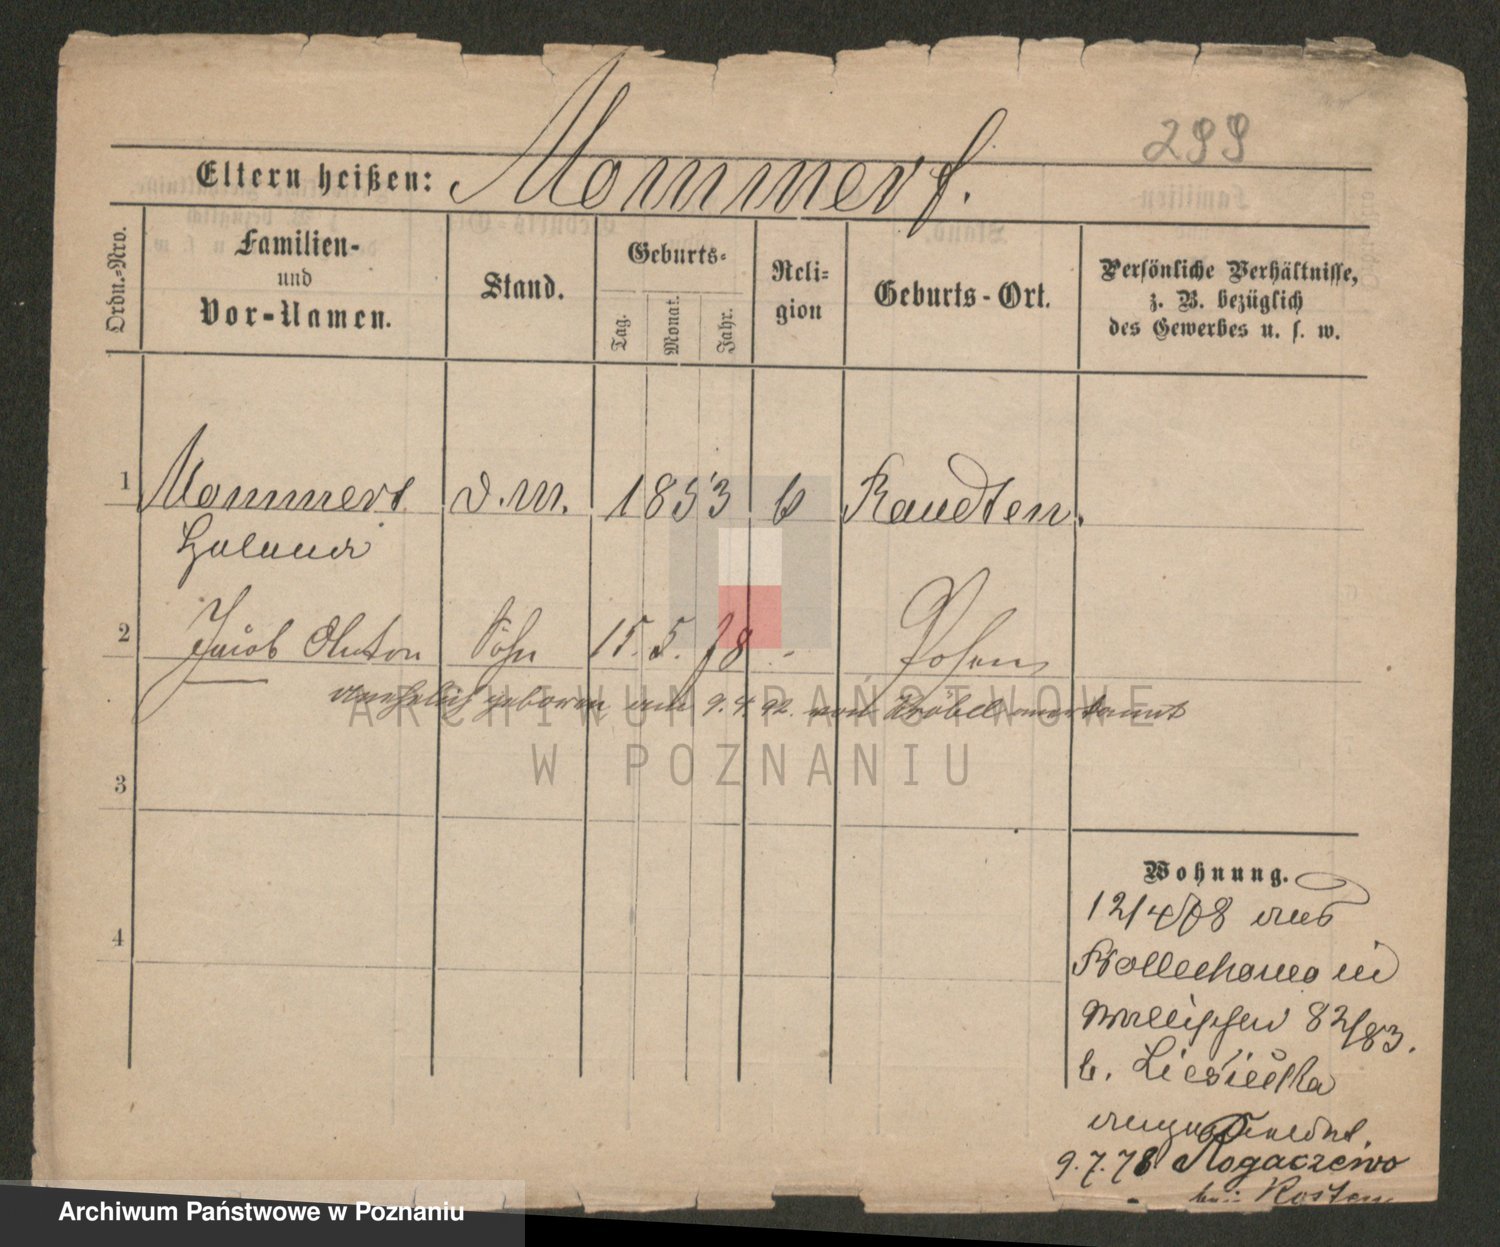 299
Eltern heißen: Mommert.
Ordn.-Nro.
Familien-
und
Vor-Namen.
Stand.
Geburts-
Tag.
Monat.
Jahr.
Reli-
gion
Geburts-Ort.
Persönliche Verhältnisse,
z. B. bezüglich
des Gewerbes u. s. w.
1 Mommert d. M. 1853 Raudten.
2 Jacob Anton Sohn 15. 5. 78 Posen
geboren 9. 4. 92.
3
4
Wohnung.
12/4 78 aus
in
Wallischei 82/83.
b.
9.7.78 Rogaczewo
bei Kosten
ARCHIWUM PAŃSTWOWE
W POZNANIU
Archiwum Państwowe w Poznaniu